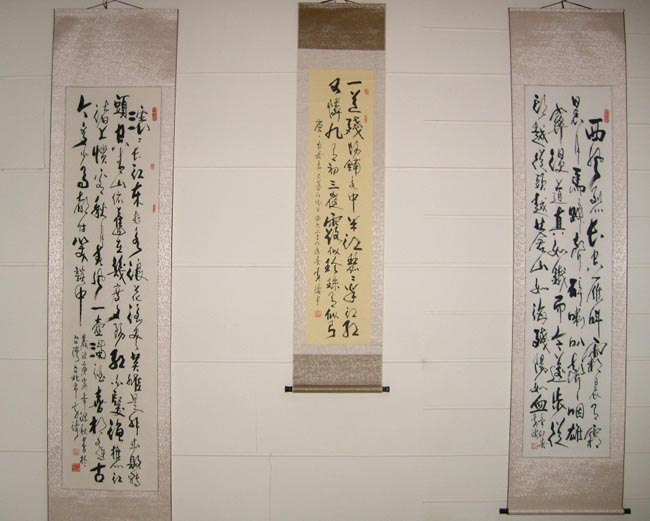 西風烈長空雁叫霜晨月霜
晨月馬蹄聲碎喇叭聲咽雄
關漫道真如鐵而今邁步從
頭越從頭越蒼山如海殘陽如血
一道殘陽鋪水中半江瑟瑟半江紅
可憐九月初三夜露似珍珠月似弓
滾滾長江東逝水浪花淘盡英雄是非成敗轉
頭空青山依舊在幾度夕陽紅白髮漁樵江
渚上慣看秋月春風一壺濁酒喜相逢古
今多少事都付笑談中
台灣台北市